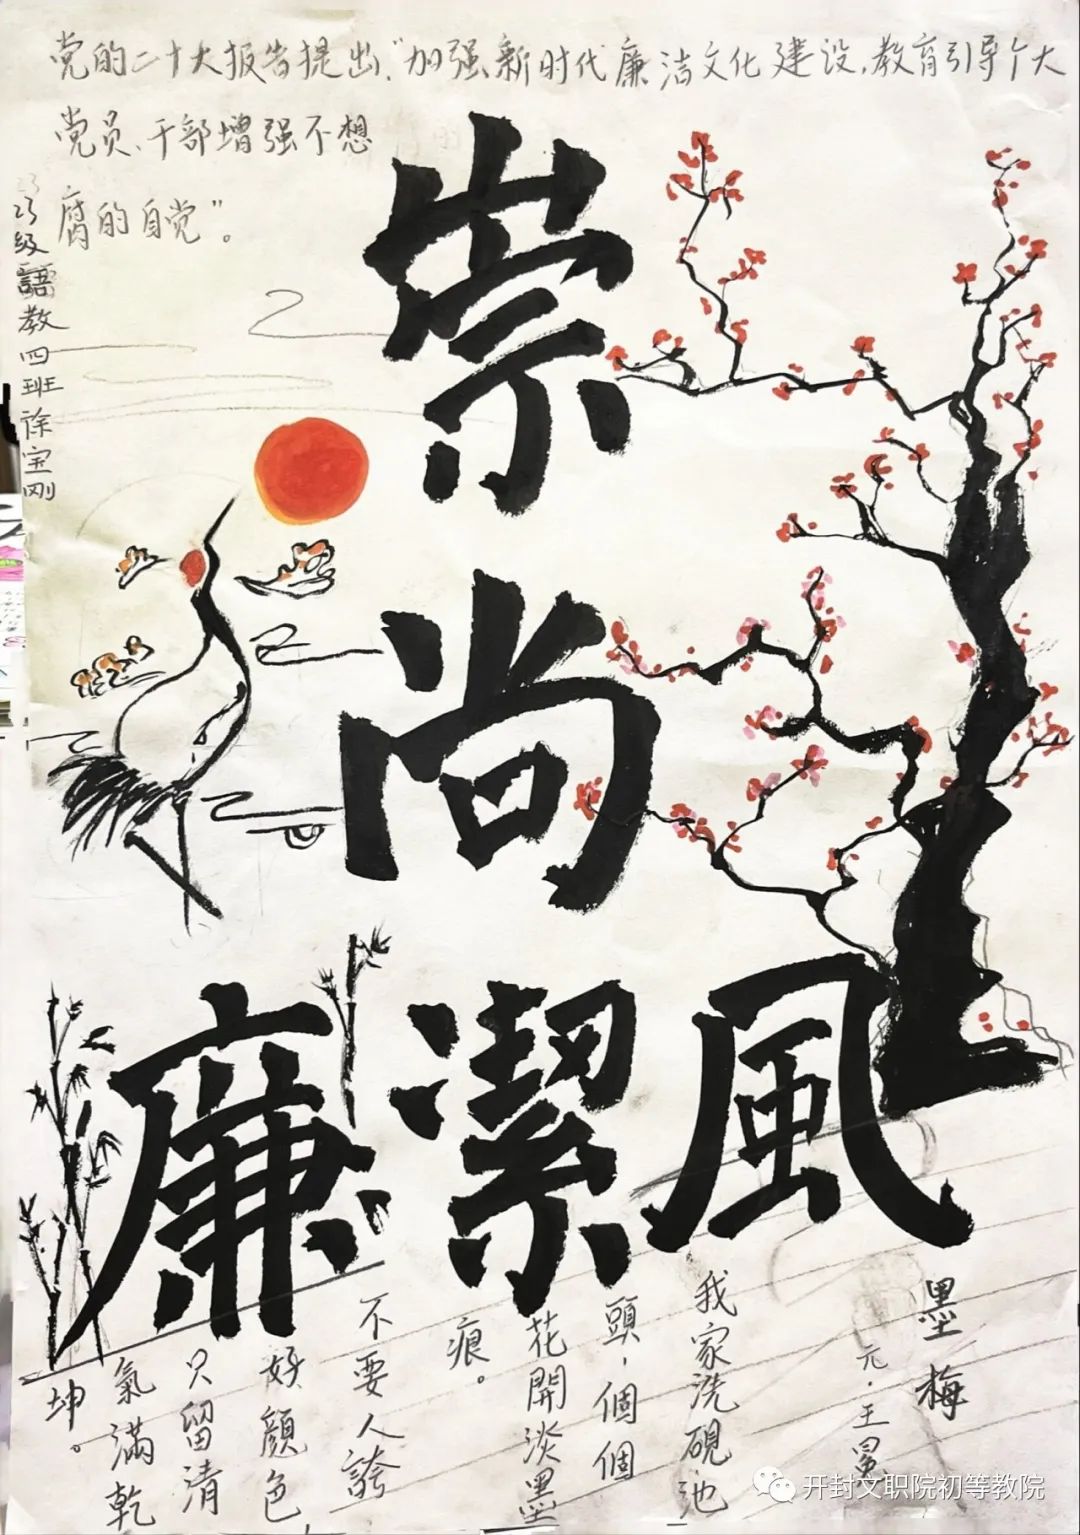 党的二十大报告提出、“加强新时代廉洁文化建设,教育引导广大
党员、干部增强不想
腐的自觉”。
级語教四班徐宝刚
崇
尚
廉潔風
墨梅
元·王冕
我家洗硯池
頭,個個
花開淡墨
痕。
不要人誇
好顏色
只留清
氣滿乾
坤。
开封文职院初等教院